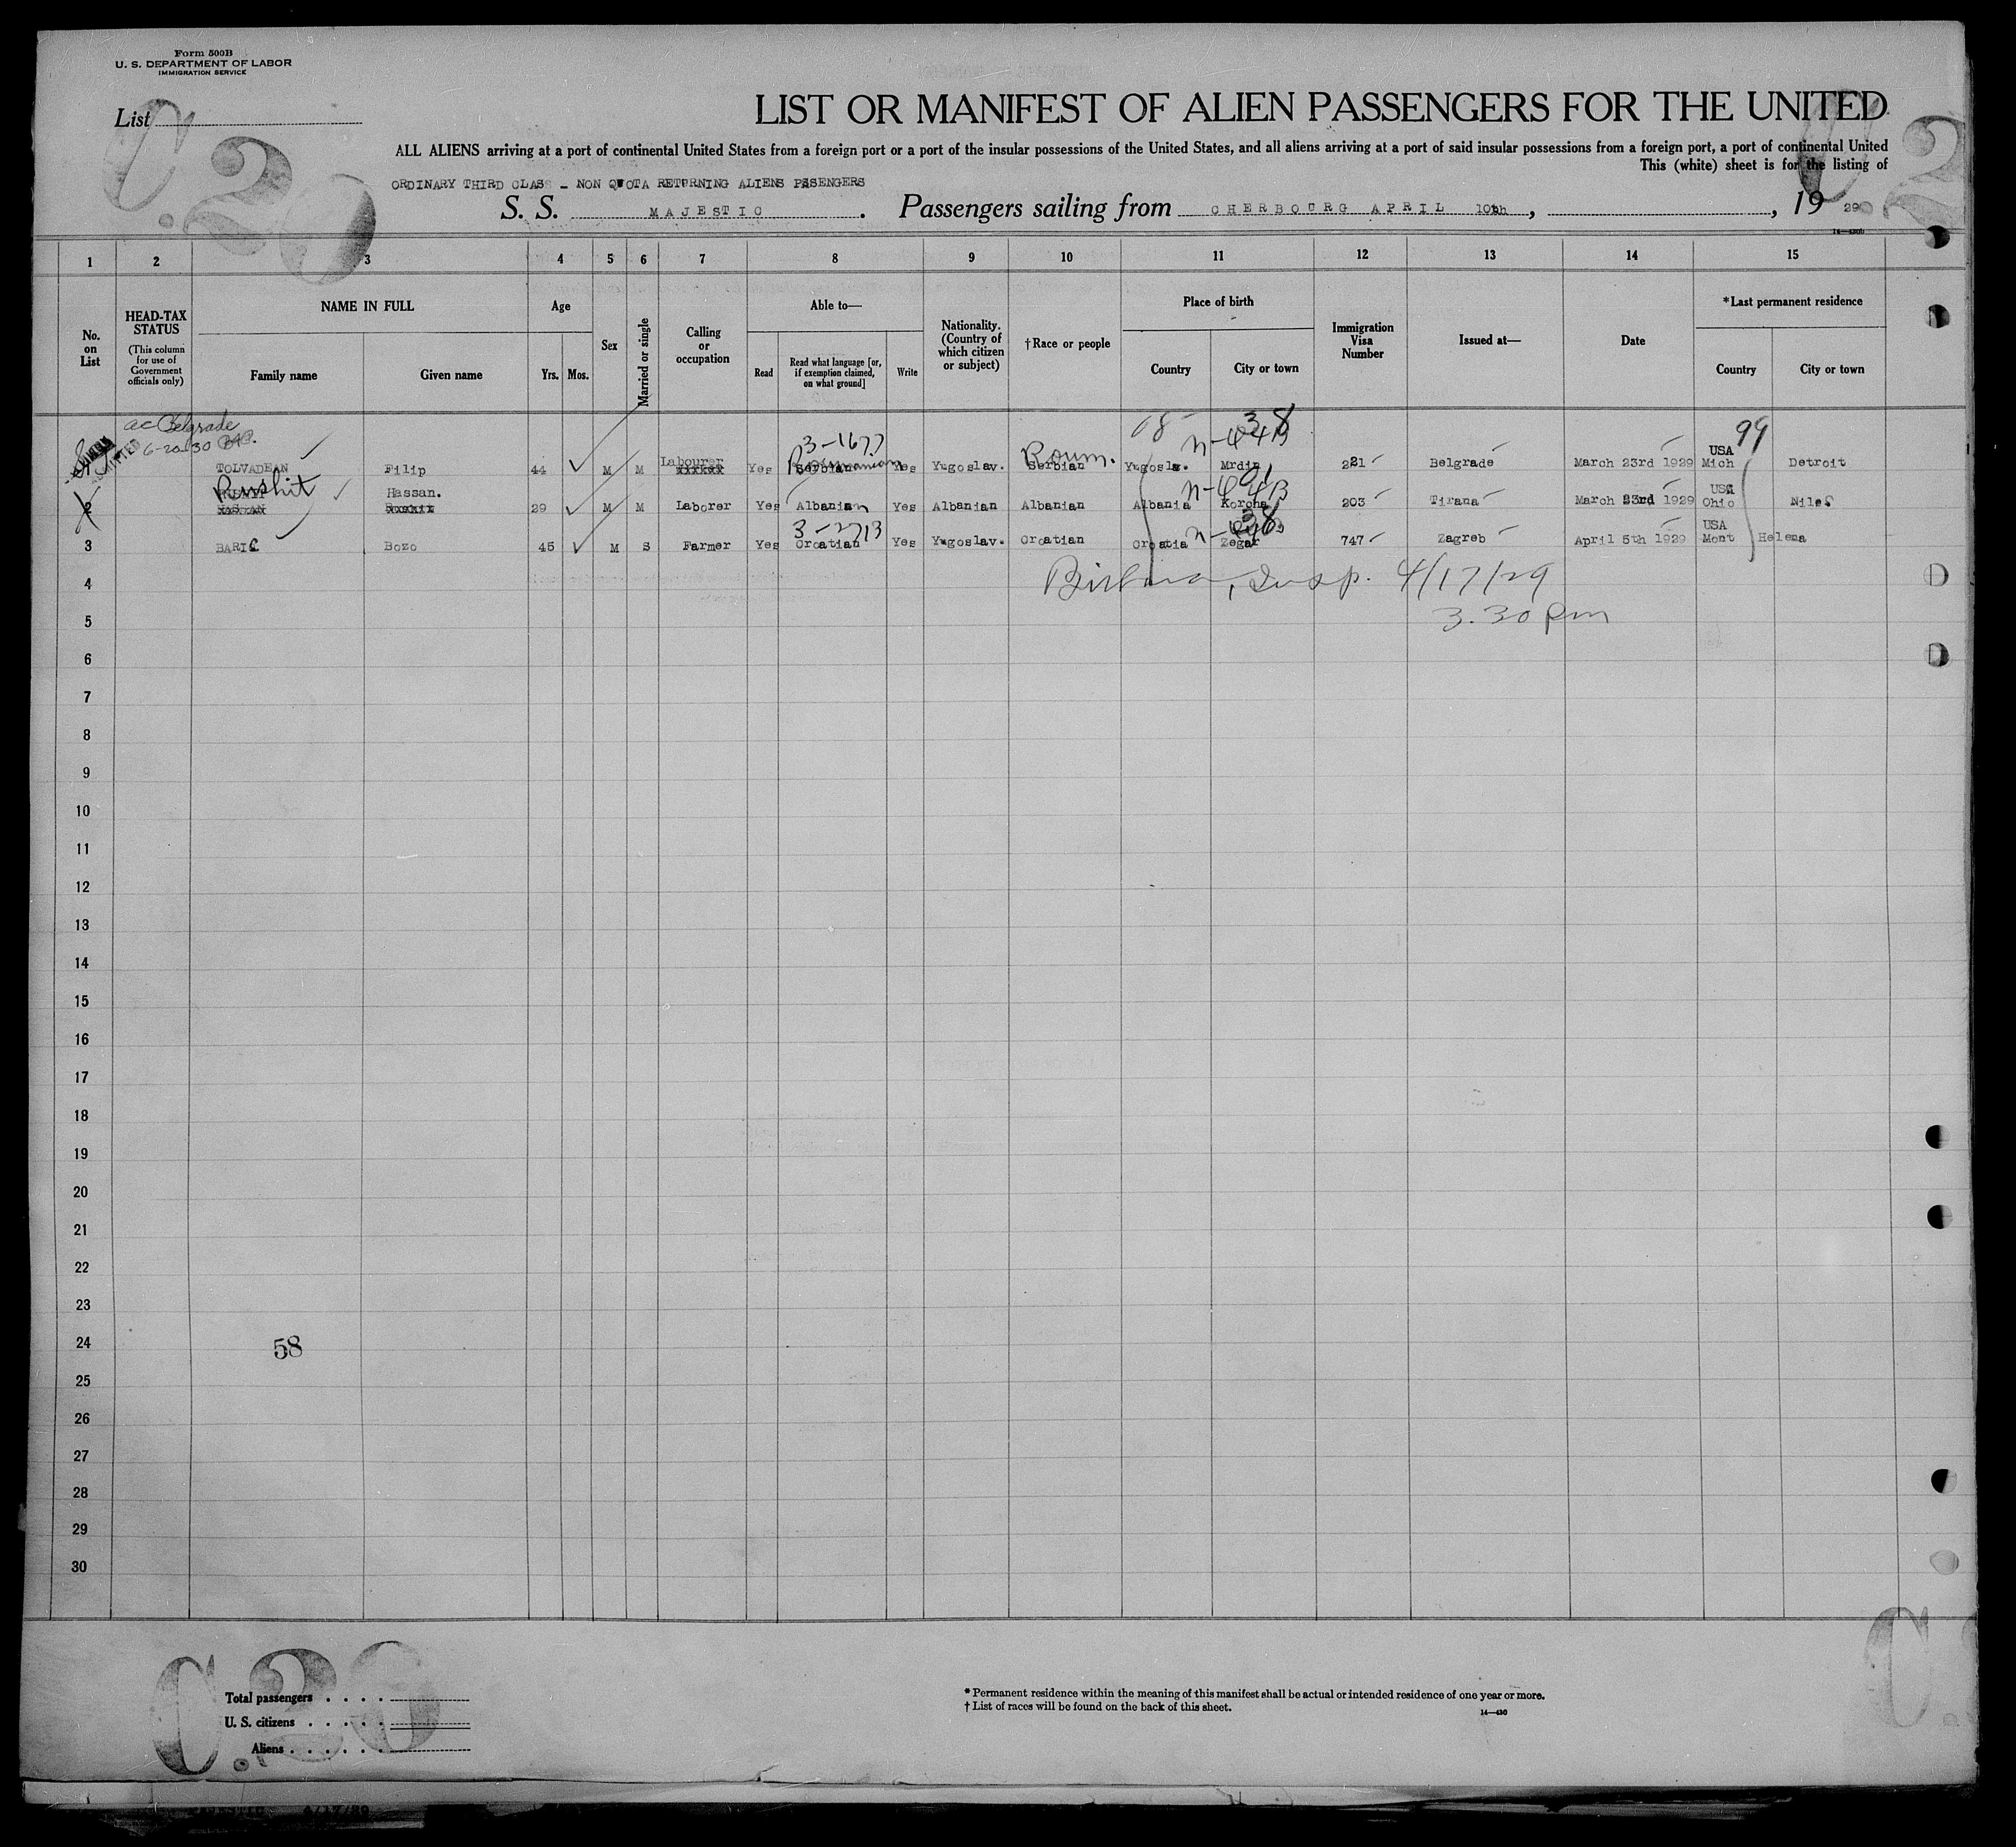 Form 500B
U. S. DEPARTMENT OF LABOR
IMMIGRATION SERVICE
List
C.20
C.2
LIST OR MANIFEST OF ALIEN PASSENGERS FOR THE UNITED
ALL ALIENS arriving at a port of continental United States from a foreign port or a port of the insular possessions of the United States, and all aliens arriving at a port of said insular possessions from a foreign port, a port of continental United
This (white) sheet is for the listing of
ORDINARY THIRD CLASS - NON QUOTA RETURNING ALIENS PSSENGERS
S. S. MAJESTIC. Passengers sailing from CHERBOURG APRIL 10th, , 19 29
1 2 3 4 5 6 7 8 9 10 11 12 13 14 15
No. on List
HEAD-TAX STATUS
(This column for use of Government officials only)
NAME IN FULL
Family name Given name
Age
Yrs. Mos.
Sex
Married or single
Calling or occupation
Able to—
Read
Read what language [or, if exemption claimed, on what ground]
Write
Nationality. (Country of which citizen or subject)
†Race or people
Place of birth
Country City or town
Immigration Visa Number
Issued at—
Date
*Last permanent residence
Country City or town
ac Belgrade
6-20-30
ADMITTED
3-1677
38
N-44B
99
TOLVADEAN Filip 44 M M Labourer Yes Serbian Roumanian Yes Yugoslav. Serbian Roum. Yugosla. Mrdin 221 Belgrade March 23rd 1929 USA Mich Detroit
01
N-44B
2 Rushit Hassan. 29 M M Laborer Yes Albanian Yes Albanian Albanian Albania Korcha 203 Tirana March 23rd 1929 USA Ohio Niles
3-2713
38
3 BARIC Bozo 45 M S Farmer Yes Croatian Yes Yugoslav. Croatian Croatia Zegar 747 Zagreb April 5th 1929 USA Mont Helena
4
Insp. 4/17/29
5
3.30 pm
6
7
8
9
10
11
12
13
14
15
16
17
18
19
20
21
22
23
24
58
25
26
27
28
29
30
C.20
Total passengers . . . .
U. S. citizens . . . . .
Aliens . . . . . .
* Permanent residence within the meaning of this manifest shall be actual or intended residence of one year or more.
† List of races will be found on the back of this sheet.
14—430
4/17/29